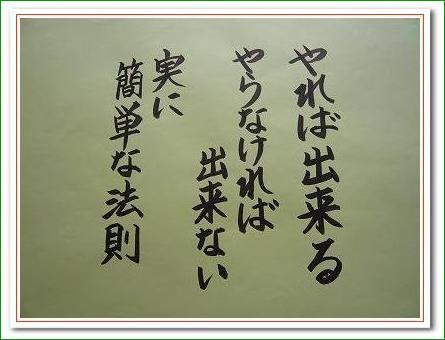 やれば出来る
やらなければ
出来ない
実に
簡単な法則